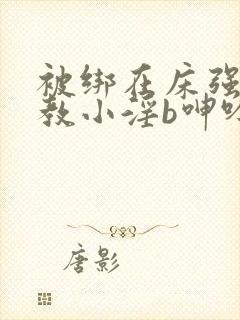 被绑在床强
教小淫b呻
唐影